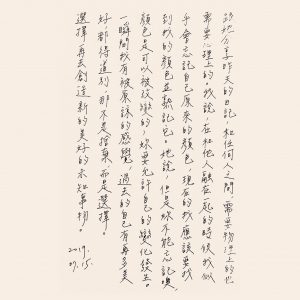 分享昨天的日記。和任何人之間,需要物理上的也
需要心理上的。我說,在和他人融在一起的時候我似
乎會忘記自己原來的顏色,現在的我應該要找
到我的顏色並熟記它。她說,但是妳不能忘記噢,
顏色是可以被改變的,妳要允許自己的變化發生。
一瞬間我有被原諒的感覺,過去的自己有再多美
好都得道別,那不是捨棄而是選擇。
選擇再去創造新的美好的未知事物。
2019.
07.15.